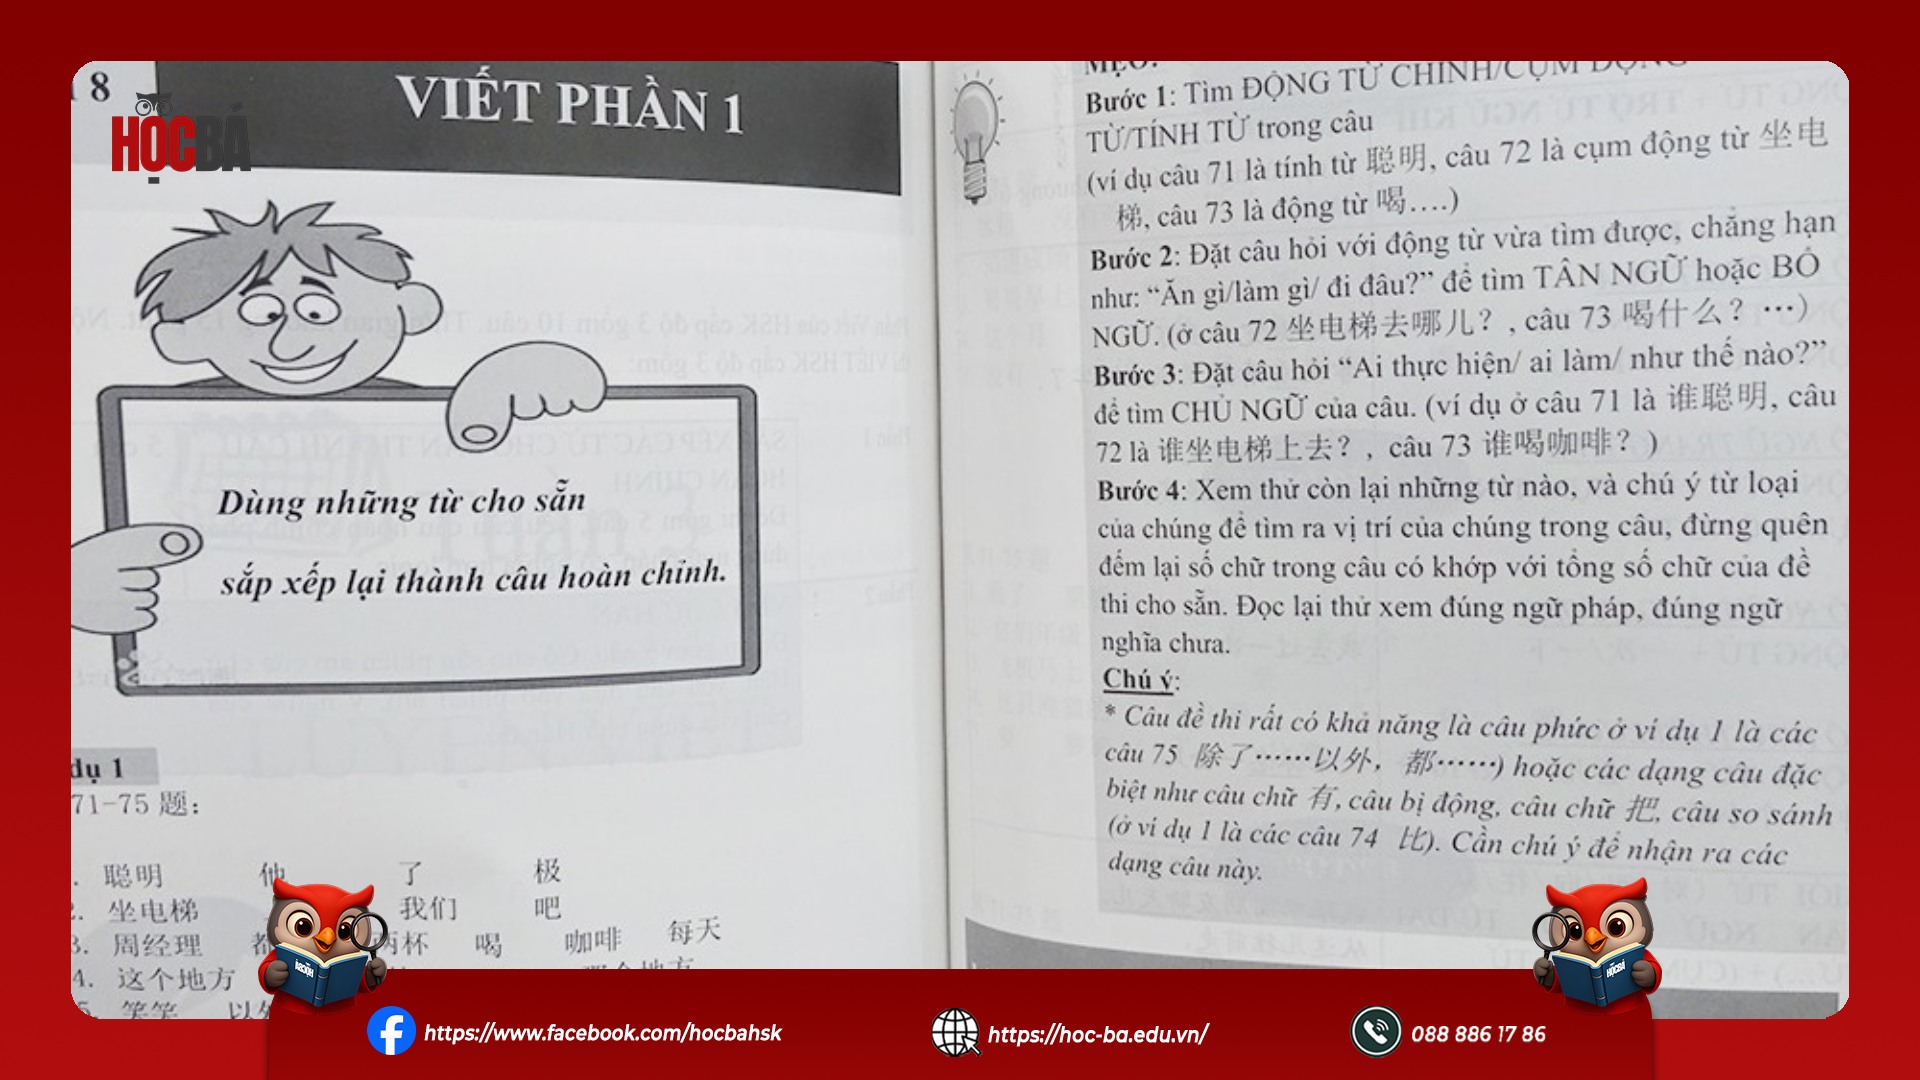 8
HỌCBÁ
VIẾT PHẦN 1
Dùng những từ cho sẵn
sắp xếp lại thành câu hoàn chỉnh.
dụ 1
71-75 题:
聪明 他 了 极
坐电梯 我们 吧
周经理 都 两杯 喝 咖啡 每天
4. 这个地方
笑笑 以外
MẸO:
Bước 1: Tìm ĐỘNG TỪ CHÍNH/CỤM ĐỘNG
TỪ/TÍNH TỪ trong câu
(ví dụ câu 71 là tính từ 聪明, câu 72 là cụm động từ 坐电
梯, câu 73 là động từ 喝....)
Bước 2: Đặt câu hỏi với động từ vừa tìm được, chẳng hạn
như: “Ăn gì/làm gì/ đi đâu?” để tìm TÂN NGỮ hoặc BỔ
NGỮ. (ở câu 72 坐电梯去哪儿? , câu 73 喝什么? …)
Bước 3: Đặt câu hỏi “Ai thực hiện/ ai làm/ như thế nào?”
để tìm CHỦ NGỮ của câu. (ví dụ ở câu 71 là 谁聪明, câu
72 là 谁坐电梯上去? , câu 73 谁喝咖啡? )
Bước 4: Xem thử còn lại những từ nào, và chú ý từ loại
của chúng để tìm ra vị trí của chúng trong câu, đừng quên
đếm lại số chữ trong câu có khớp với tổng số chữ của đề
thi cho sẵn. Đọc lại thử xem đúng ngữ pháp, đúng ngữ
nghĩa chưa.
Chú ý:
* Câu đề thi rất có khả năng là câu phức ở ví dụ 1 là các
câu 75 除了……以外, 都……) hoặc các dạng câu đặc
biệt như câu chữ 有, câu bị động, câu chữ 把, câu so sánh
(ở ví dụ 1 là các câu 74 比). Cần chú ý để nhận ra các
dạng câu này.
HỌCBÁ
HỌCBÁ
https://www.facebook.com/hocbahsk
https://hoc-ba.edu.vn/
088 886 17 86